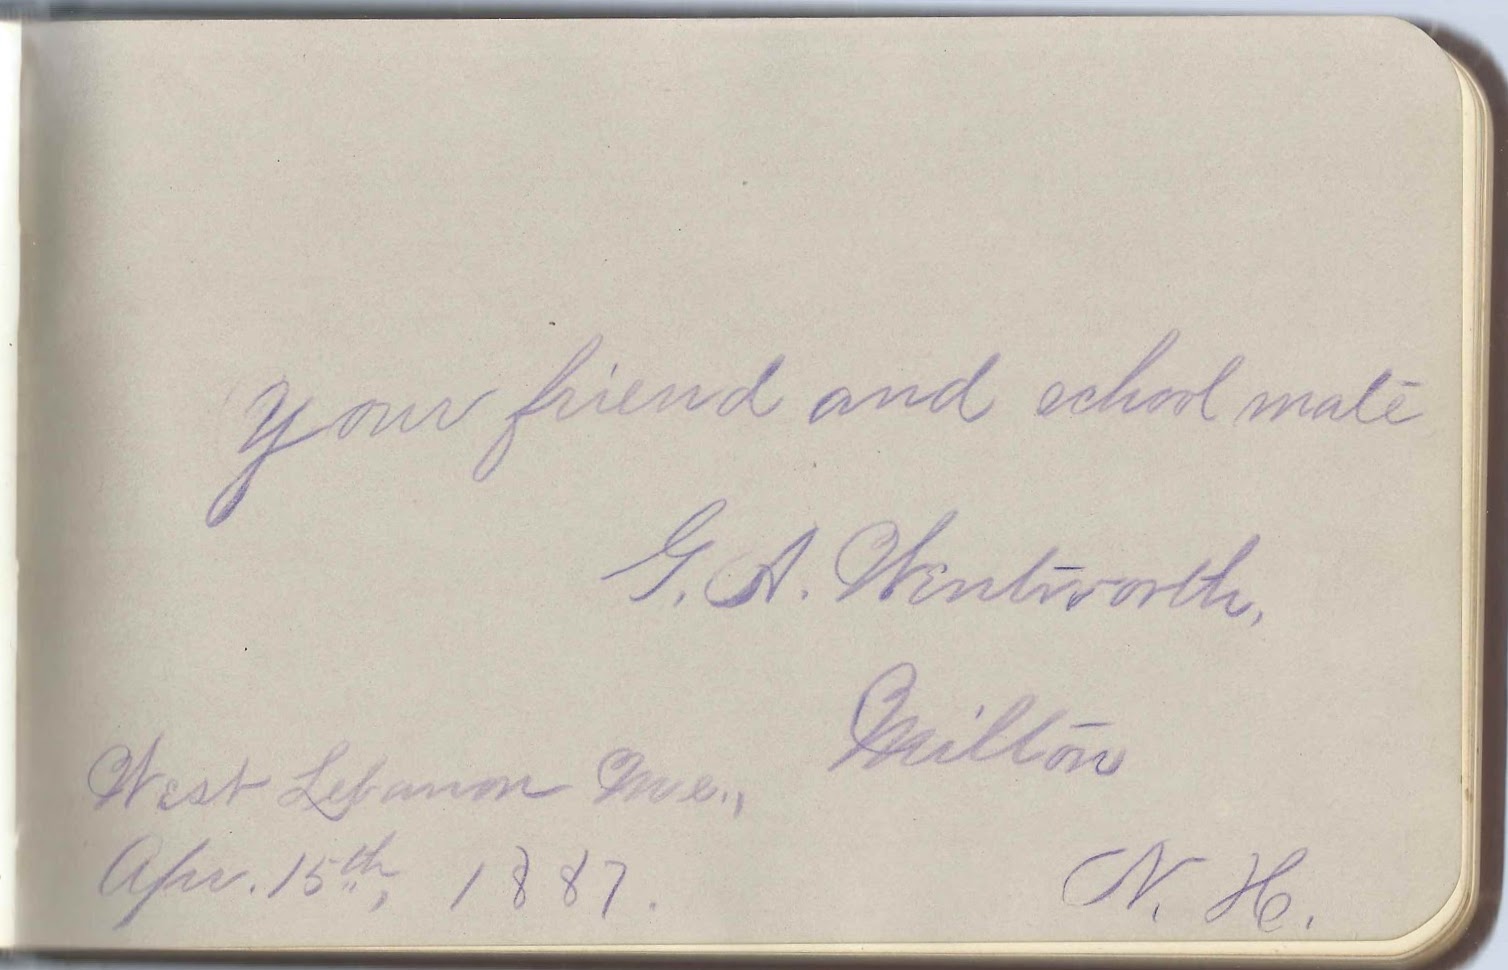 Your friend and school mate
G. A. Wentworth,
Milton
N. H.
West Lebanon Me.,
Apr. 15th, 1887.